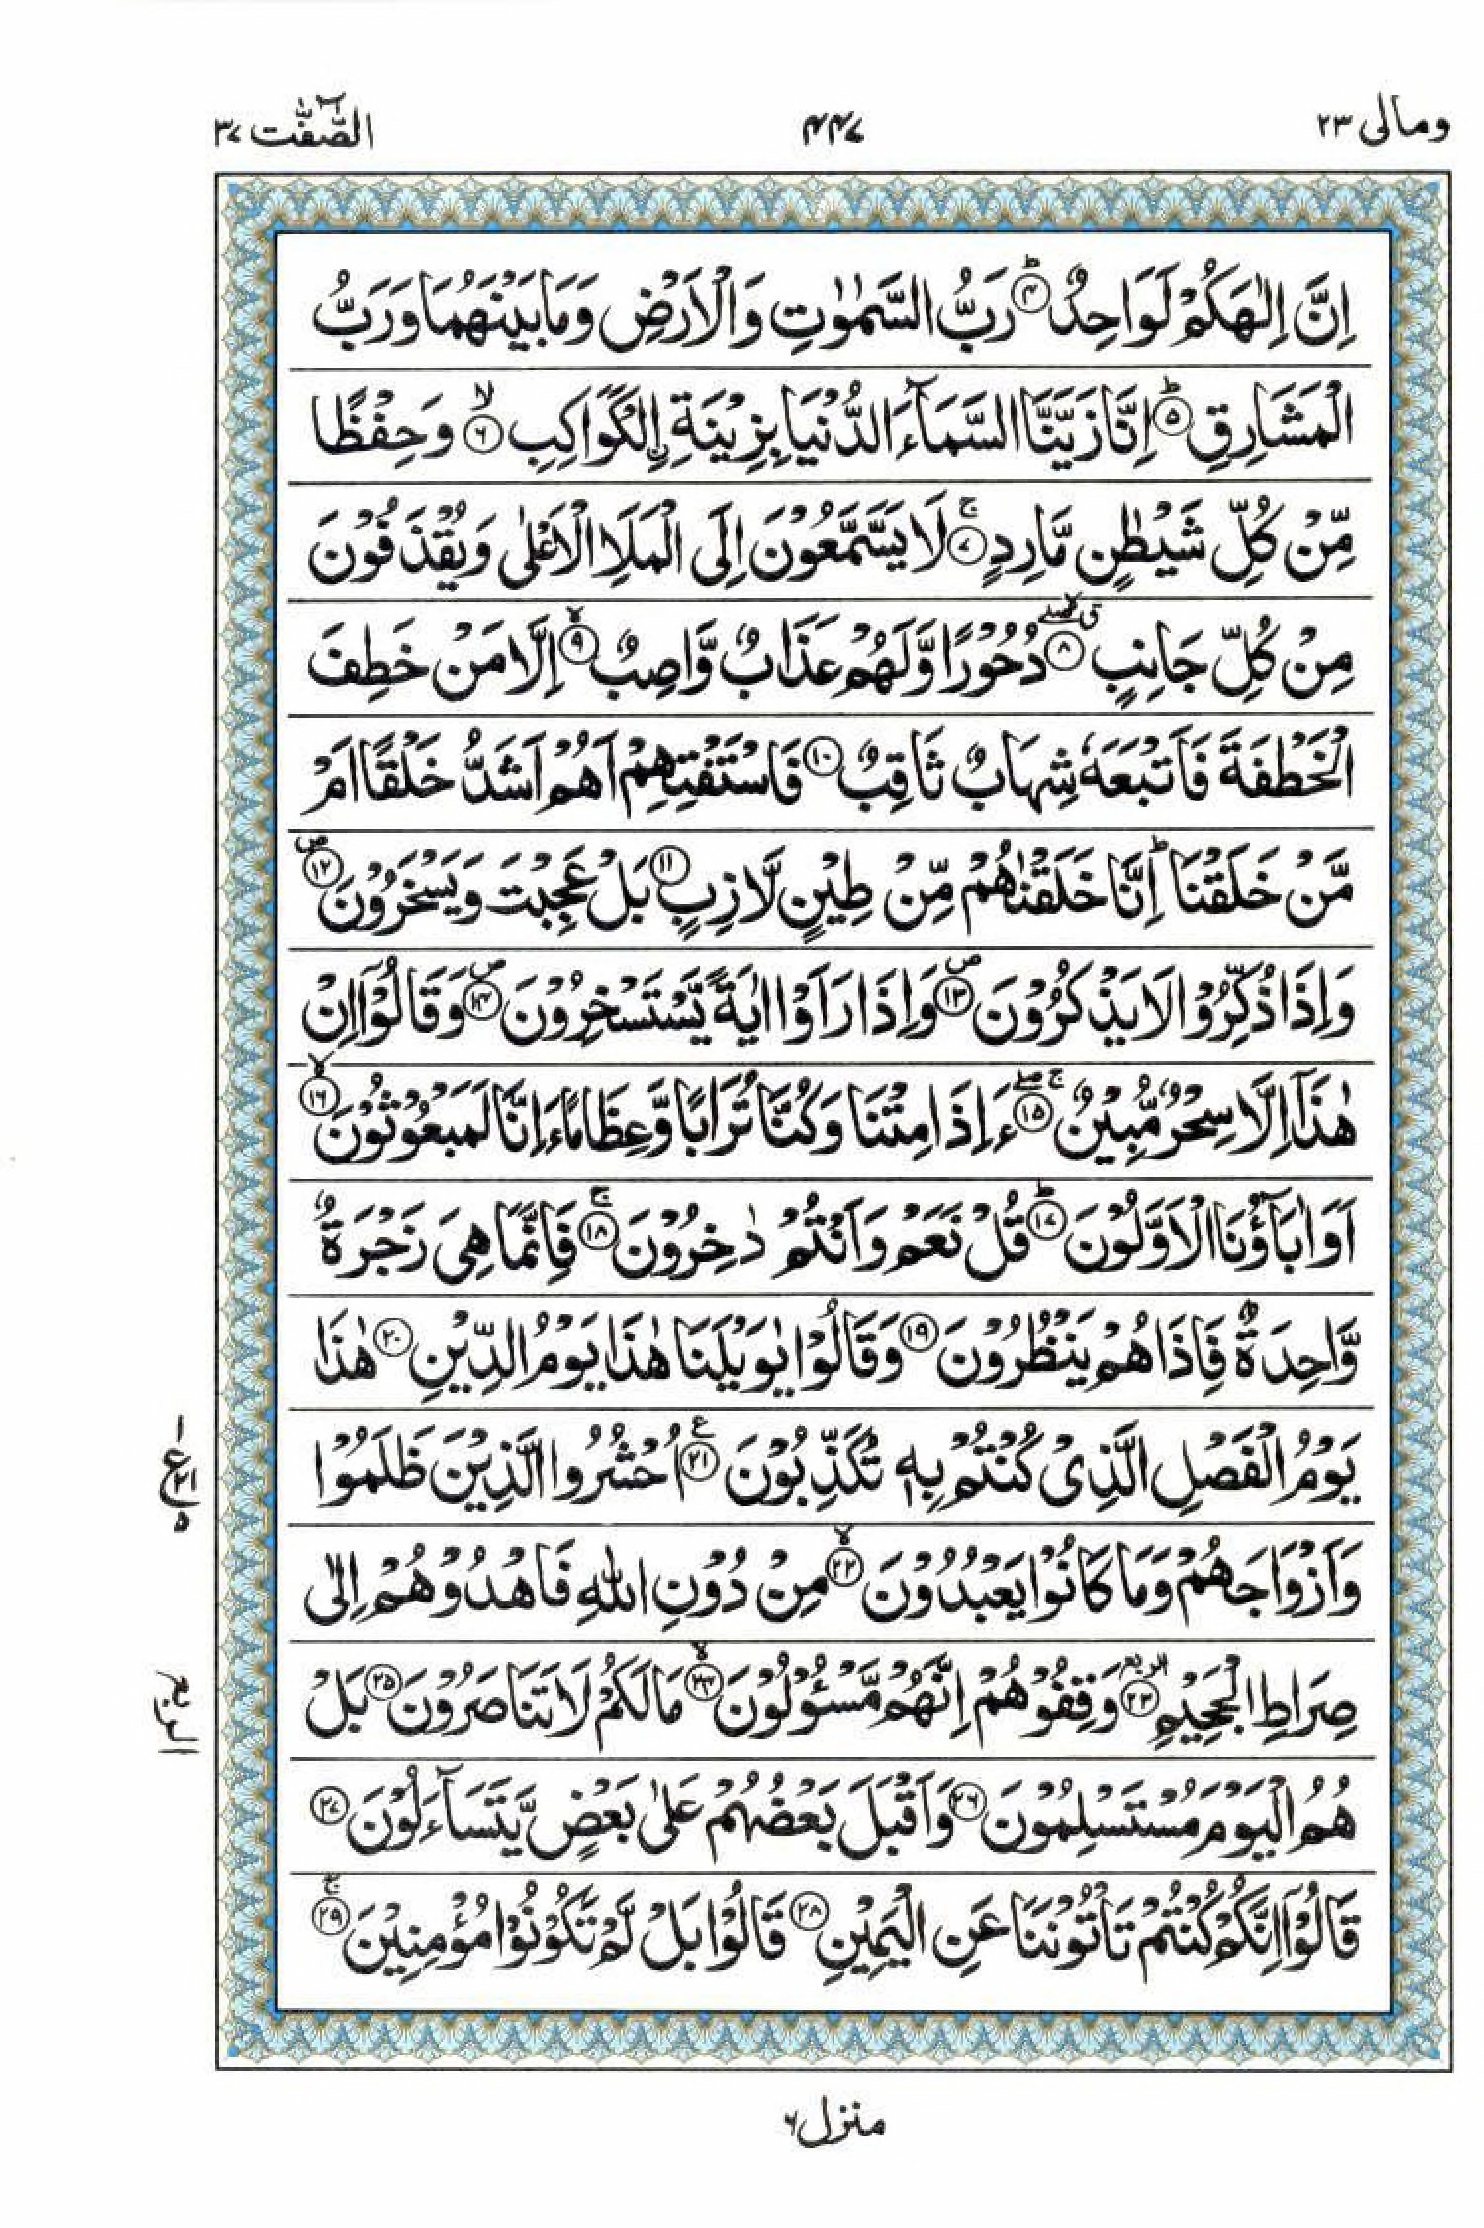 ومالى ٢٣
٤٤٧
الصّٰٓفّٰت ٣٧
اِنَّ اِلٰهَكُمْ لَوَاحِدٌ ؕ﴿۴﴾ رَبُّ السَّمٰوٰتِ وَالْاَرْضِ وَمَا بَيْنَهُمَا وَرَبُّ
الْمَشَارِقِ ؕ﴿۵﴾ اِنَّا زَيَّنَّا السَّمَآءَ الدُّنْيَا بِزِيْنَةِ ۨالْكَوَاكِبِ ۙ﴿۶﴾ وَحِفْظًا
مِّنْ كُلِّ شَيْطٰنٍ مَّارِدٍ ۚ﴿۷﴾ لَا يَسَّمَّعُوْنَ اِلَى الْمَلَاِ الْاَعْلٰى وَيُقْذَفُوْنَ
مِنْ كُلِّ جَانِبٍ ﴿۸﴾ دُحُوْرًا وَّلَهُمْ عَذَابٌ وَّاصِبٌ ۙ﴿۹﴾ اِلَّا مَنْ خَطِفَ
الْخَطْفَةَ فَاَتْبَعَهٗ شِهَابٌ ثَاقِبٌ ﴿۱۰﴾ فَاسْتَفْتِهِمْ اَهُمْ اَشَدُّ خَلْقًا اَمْ
مَّنْ خَلَقْنَا ؕ اِنَّا خَلَقْنٰهُمْ مِّنْ طِيْنٍ لَّازِبٍ ﴿۱۱﴾ بَلْ عَجِبْتَ وَيَسْخَرُوْنَ ﴿۱۲﴾ۖ
وَاِذَا ذُكِّرُوْا لَا يَذْكُرُوْنَ ﴿۱۳﴾ۖ وَاِذَا رَاَوْا اٰيَةً يَّسْتَسْخِرُوْنَ ﴿۱۴﴾ۖ وَقَالُوْۤا اِنْ
هٰذَاۤ اِلَّا سِحْرٌ مُّبِيْنٌ ۚۖ﴿۱۵﴾ ءَاِذَا مِتْنَا وَكُنَّا تُرَابًا وَّعِظَامًا ءَاِنَّا لَمَبْعُوْثُوْنَ ۙ﴿۱۶﴾
اَوَاٰبَآؤُنَا الْاَوَّلُوْنَ ؕ﴿۱۷﴾ قُلْ نَعَمْ وَاَنْتُمْ دٰخِرُوْنَ ۚ﴿۱۸﴾ فَاِنَّمَا هِيَ زَجْرَةٌ
وَّاحِدَةٌ فَاِذَا هُمْ يَنْظُرُوْنَ ﴿۱۹﴾ وَقَالُوْا يٰوَيْلَنَا هٰذَا يَوْمُ الدِّيْنِ ﴿۲۰﴾ هٰذَا
يَوْمُ الْفَصْلِ الَّذِىْ كُنْتُمْ بِهٖ تُكَذِّبُوْنَ ﴿۲۱﴾ع اُحْشُرُوا الَّذِيْنَ ظَلَمُوْا
١ ع ٢١ ٥
وَاَزْوَاجَهُمْ وَمَا كَانُوْا يَعْبُدُوْنَ ۙ﴿۲۲﴾ مِنْ دُوْنِ اللّٰهِ فَاهْدُوْهُمْ اِلٰى
صِرَاطِ الْجَحِيْمِ ﴿۲۳﴾ الربع وَقِفُوْهُمْ اِنَّهُمْ مَّسْئُوْلُوْنَ ۙ﴿۲۴﴾ مَا لَكُمْ لَا تَنَاصَرُوْنَ ﴿۲۵﴾ بَلْ
الربع
هُمُ الْيَوْمَ مُسْتَسْلِمُوْنَ ﴿۲۶﴾ وَاَقْبَلَ بَعْضُهُمْ عَلٰى بَعْضٍ يَّتَسَآءَلُوْنَ ﴿۲۷﴾
قَالُوْۤا اِنَّكُمْ كُنْتُمْ تَاْتُوْنَنَا عَنِ الْيَمِيْنِ ﴿۲۸﴾ قَالُوْا بَلْ لَّمْ تَكُوْنُوْا مُؤْمِنِيْنَ ۚ﴿۲۹﴾
منزل ٦